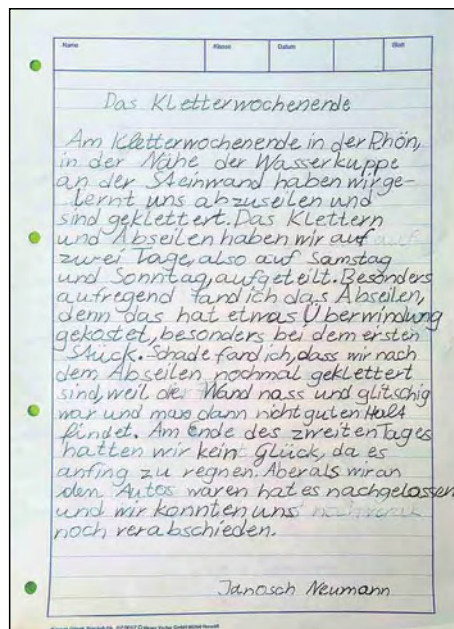 Name Klasse Datum Blatt
Das Kletterwochenende
Am Kletterwochenende in der Rhön,
in der Nähe der Wasserkuppe
an der Steinwand haben wir ge-
lernt uns abzuseilen und
sind geklettert. Das Klettern
und Abseilen haben wir auf
zwei Tage, also auf Samstag
und Sonntag, aufgeteilt. Besonders
aufregend fand ich das Abseilen,
denn das hat etwas Überwindung
gekostet, besonders bei dem ersten
Stück. Schade fand ich, dass wir nach
dem Abseilen nochmal geklettert
sind, weil die Wand nass und glitschig
war und man dann nicht guten Halt
findet. Am Ende des zweiten Tages
hatten wir kein Glück, da es
anfing zu regnen. Aber als wir an
den Autos waren hat es nachgelassen
und wir konnten uns
noch verabschieden.
Janosch Neumann